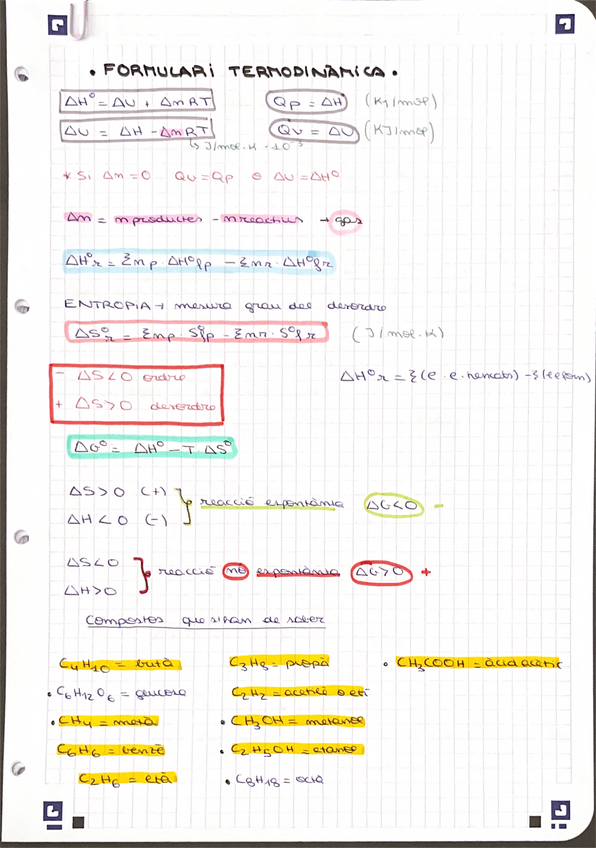 • FORMULARI TERMODINÀMICA •
ΔH° = ΔU + ΔnRT Qp = ΔH (KJ/mol)
ΔU = ΔH - ΔnRT Qv = ΔU (KJ/mol)
↳ J/mol·K · 10⁻³
* Si Δn=0 Qv=Qp o ΔU=ΔH°
Δn = nproductes - nreactius → gas
ΔH°r = Σnp · ΔH°fp - Σnr · ΔH°fr
ENTROPIA → mesura grau del desordre
ΔS°r = Σnp · S°fp - Σnr · S°fr (J/mol·K)
- ΔS<0 ordre
+ ΔS>0 desordre
ΔH°r = Σ(e. e. trencats) - Σ(e e form)
ΔG° = ΔH° - T·ΔS°
ΔS>0 (+)
ΔH<0 (-)
reacció espontània ΔG<0 -
ΔS<0
ΔH>0
reacció no espontània ΔG>0 +
Compostos que s'han de saber
C4H10 = butà C3H8 = propà • CH3COOH = àcid acètic
• C6H12O6 = glucosa C2H2 = acetilè o etí
• CH4 = metà • CH3OH = metanol
C6H6 = benzè • C2H5OH = etanol
C2H6 = età • C8H18 = octà